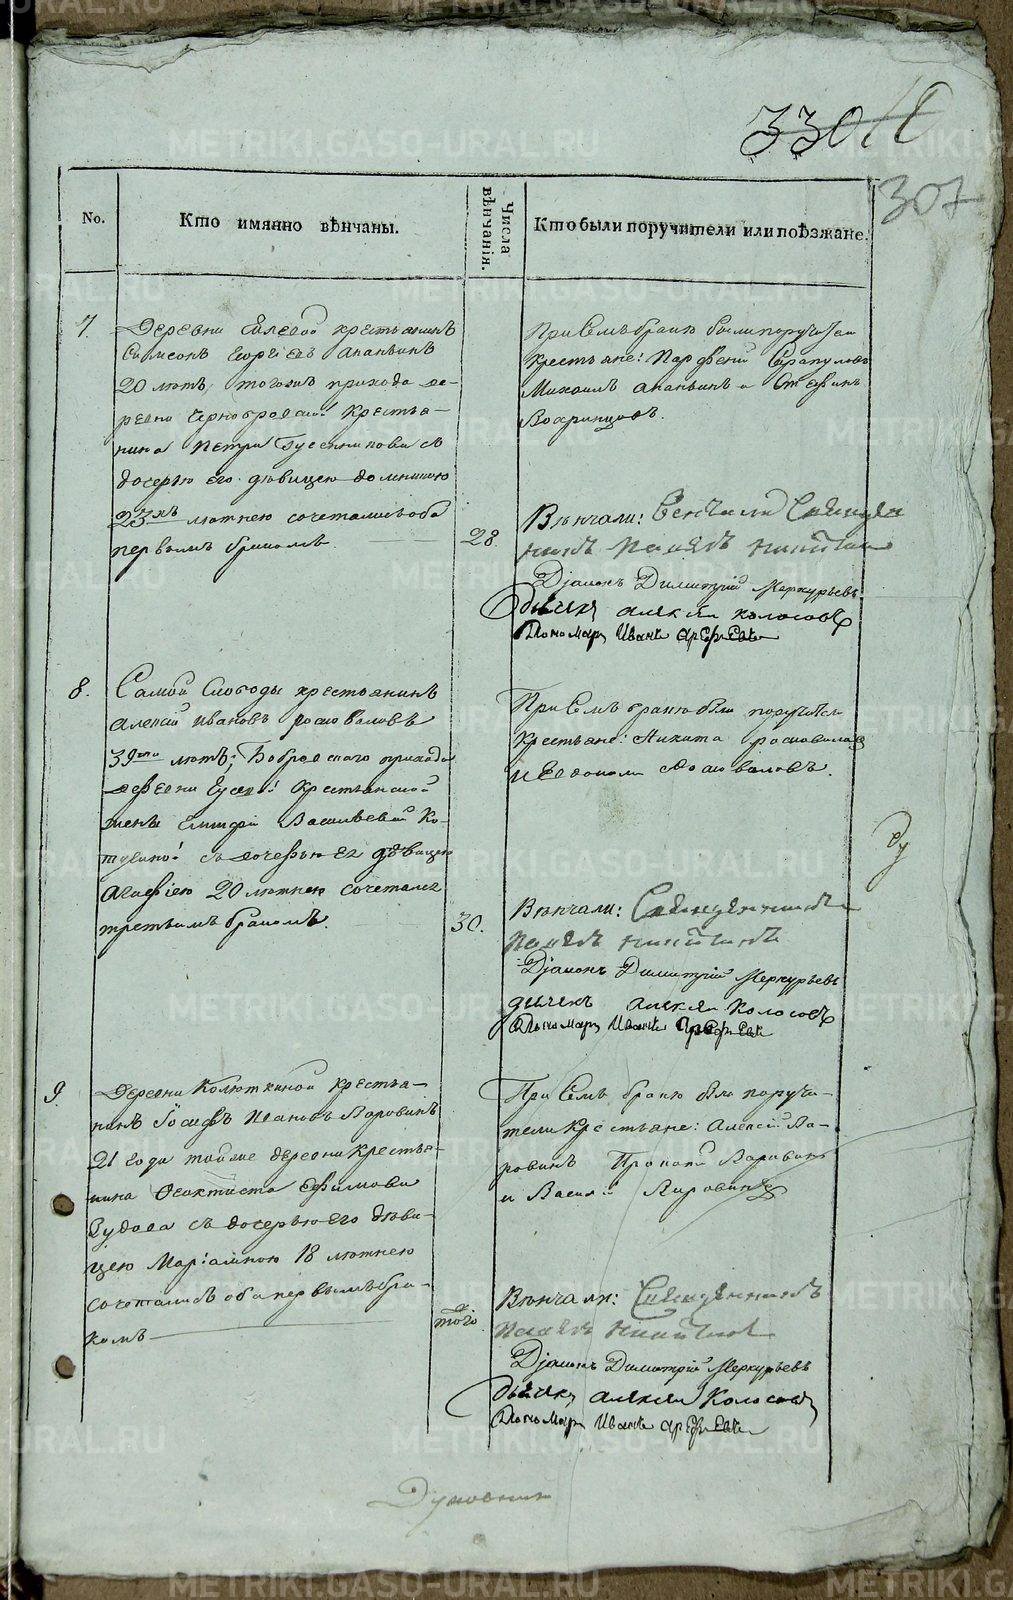 330
307
No.
Кто имянно вѣнчаны.
Числа вѣнчанія.
Кто были поручители или поѣзжане.
7.
Деревни крестьянинъ
Симеонъ Георгіевъ Ананьинъ
20 лѣтъ, тогожъ прихода де-
ревни Чернобровской крестья-
нина Петра
дочерью его дѣвицею Домникою
23хъ лѣтнею сочетались оба
первымъ бракомъ
28
При семъ бракѣ были поручители
крестьяне: Парфеній
Михаилъ Ананьинъ и Стефанъ
Вохринцовъ.
Вѣнчали: Венчали Священ
никъ Павелъ Никитинъ
Діаконъ Димитрій Меркурьевъ
дьячекъ Алексѣй Колосовъ
Пономарь Иванъ Арефьевъ
8.
Самой Слободы крестьянинъ
Алексій Ивановъ
39ти лѣтъ; Бобровскаго прихода
деревни крестьянской
жены Васильевой Ко-
съ дочерью ея дѣвицею
Агафіею 20 лѣтнею сочетался
третьимъ бракомъ.
30.
При семъ бракѣ были поручители
крестьяне: Никита
и Евдокимъ
Вѣнчали: Священникъ
Павелъ Никитинъ
Діаконъ Димитрій Меркурьевъ
дьячекъ Алексѣй Колосовъ
Пономарь Иванъ Арефьевъ
9
Деревни Колюткиной крестья-
нинъ Іосифъ Ивановъ Яровинъ
21 года тойже деревни крестья-
нина Феоктиста Ефимова
Рудова съ дочерью его дѣви-
цею Маріамною 18 лѣтнею
сочетались оба первымъ бра-
комъ
тогò
При семъ бракѣ были поручи-
тели крестьяне: Алексій Яа-
ровинъ Прокопій Яаровинъ
и Василій Яировинъ
Вѣнчали: Священникъ
Павелъ Никитинъ
Діаконъ Димитрій Меркурьевъ
дьячекъ Алексѣй Колосовъ
Пономарь Иванъ Арефьевъ
Духовникъ
METRIKI.GASO-URAL.RU